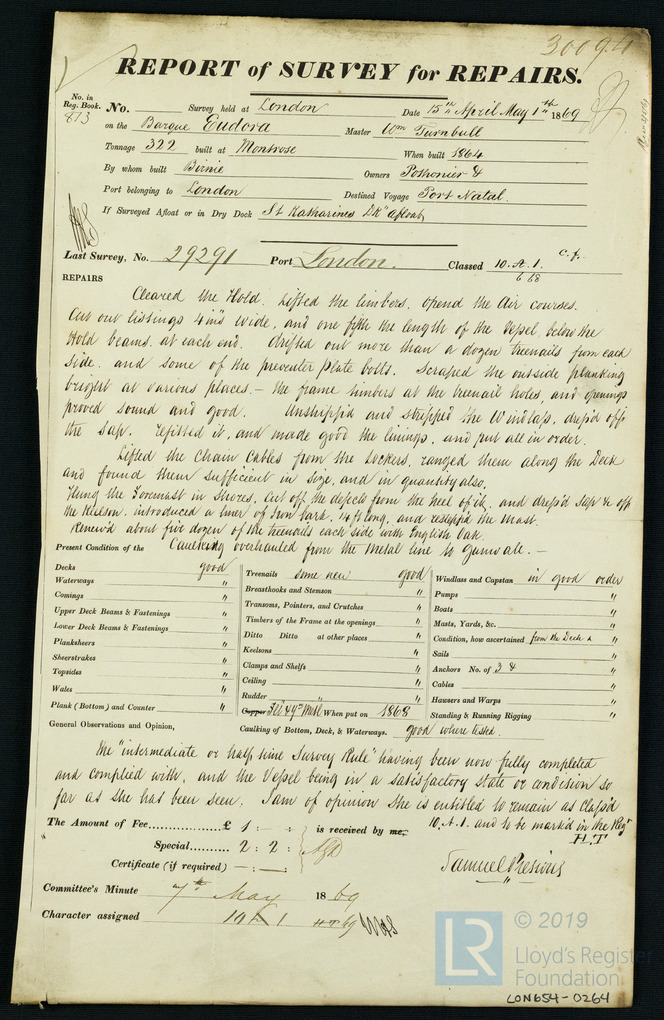 30094
REPORT of SURVEY for REPAIRS.
No. in Reg. Book. 813 No. Survey held at London Date 15th April May 1st 1869
on the Barque Eudora Master Wm Turnbull
Tonnage 322 built at Montrose When built 1864
By whom built Birnie Owners
Port belonging to London Destined Voyage Port Natal.
If Surveyed Afloat or in Dry Dock St Katharines Dk afloat
Last Survey, No. 29291 Port London. Classed 10.A.1. c.f.
6 68
REPAIRS
Cleared the Hold. Lifted the limbers. Opend the Air courses.
Cut out listings 4 ins wide, and one fifth the length of the Vessel, below the
Hold beams, at each end. drifted out more than a dozen treenails from each
side, and some of the preventer Plate bolts. Scraped the outside planking
bright at various places. - the frame timbers at the treenail holes, and openings
proved sound and good. Unshipp'd and stripped the Windlass, dress'd off
the Sap. refitted it, and made good the linings, and put all in order.
Lifted the Chain Cables from the Lockers, ranged them along the Deck
and found them sufficient in size, and in quantity also.
Hung the Foremast in Shores, cut off the defects from the heel of it, and dress'd Sap & off
the Keelson. introduced a liner of Iron bark, 4 ft long, and restepp'd the Mast.
Renew'd about five dozen of the treenails each side with English Oak.
Present Condition of the Caulking overhauled from the metal line to Gunwale. -
Decks good
Waterways "
Comings "
Upper Deck Beams & Fastenings "
Lower Deck Beams & Fastenings "
Planksheers "
Sheerstrakes "
Topsides "
Wales "
Plank (Bottom) and Counter "
Treenails some new good
Breasthooks and Stemson "
Transoms, Pointers, and Crutches "
Timbers of the Frame at the openings "
Ditto Ditto at other places "
Keelsons "
Clamps and Shelfs "
Ceiling "
Rudder "
Copper When put on 1868
Caulking of Bottom, Deck, & Waterways. good where tested.
Windlass and Capstan in good order
Pumps "
Boats "
Masts, Yards, &c. "
Condition, how ascertained from the Deck & "
Sails "
Anchors No. of 3 & "
Cables "
Hawsers and Warps "
Standing & Running Rigging "
General Observations and Opinion,
The "intermediate or half time Survey Rule" having been now fully completed
and complied with, and the Vessel being in a satisfactory state or condition so
far as she has been seen. I am of opinion she is entitled to remain as Class'd
10.A.1. and to be mark'd in the Regr
H.T
The Amount of Fee............... £ 1 : - : is received by me,
Special.......... 2 : 2 :
Certificate (if required) - : - :
Samuel Presious
Committee's Minute 7th May 1869
Character assigned 10 A 1 HT 69
© 2019
LR
Lloyd's Register
Foundation
LON654-0264